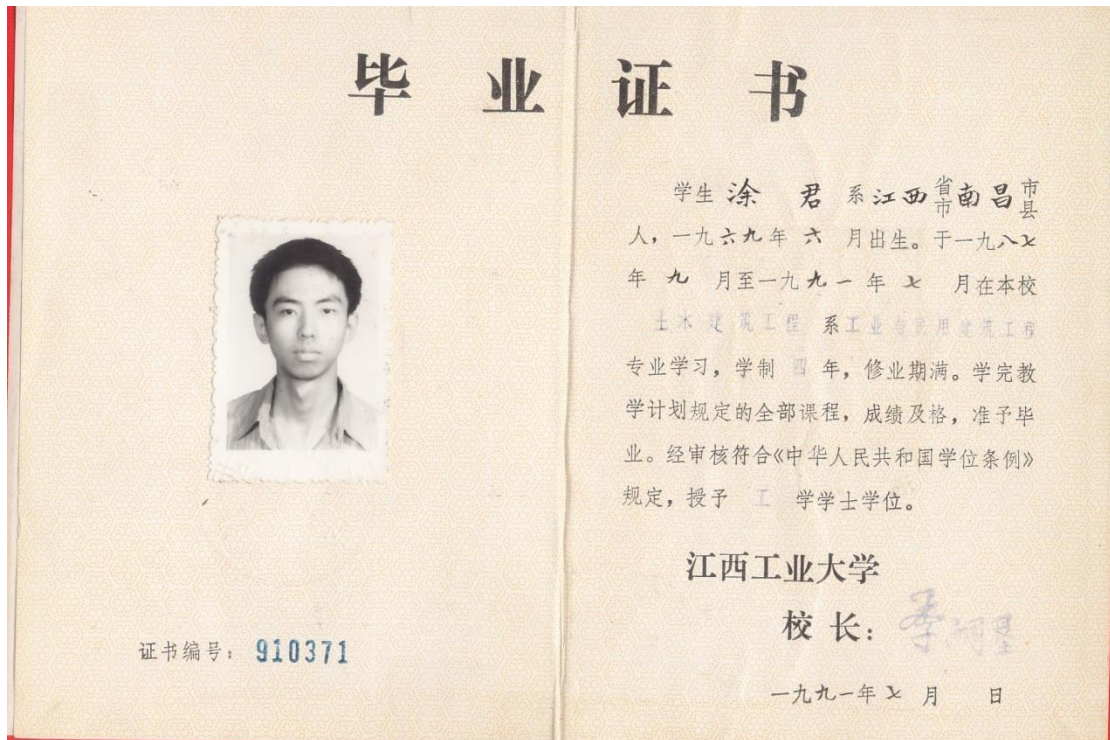 毕业证书
学生 涂 君 系江西省市南昌市县
人，一九六九年 六 月出生。于一九八七
年 九 月至一九九一年 七 月在本校
土木建筑工程 系工业与民用建筑工程
专业学习，学制 四 年，修业期满。学完教
学计划规定的全部课程，成绩及格，准予毕
业。经审核符合《中华人民共和国学位条例》
规定，授予 工 学学士学位。
江西工业大学
校长：
一九九一年七月 日
证书编号：910371